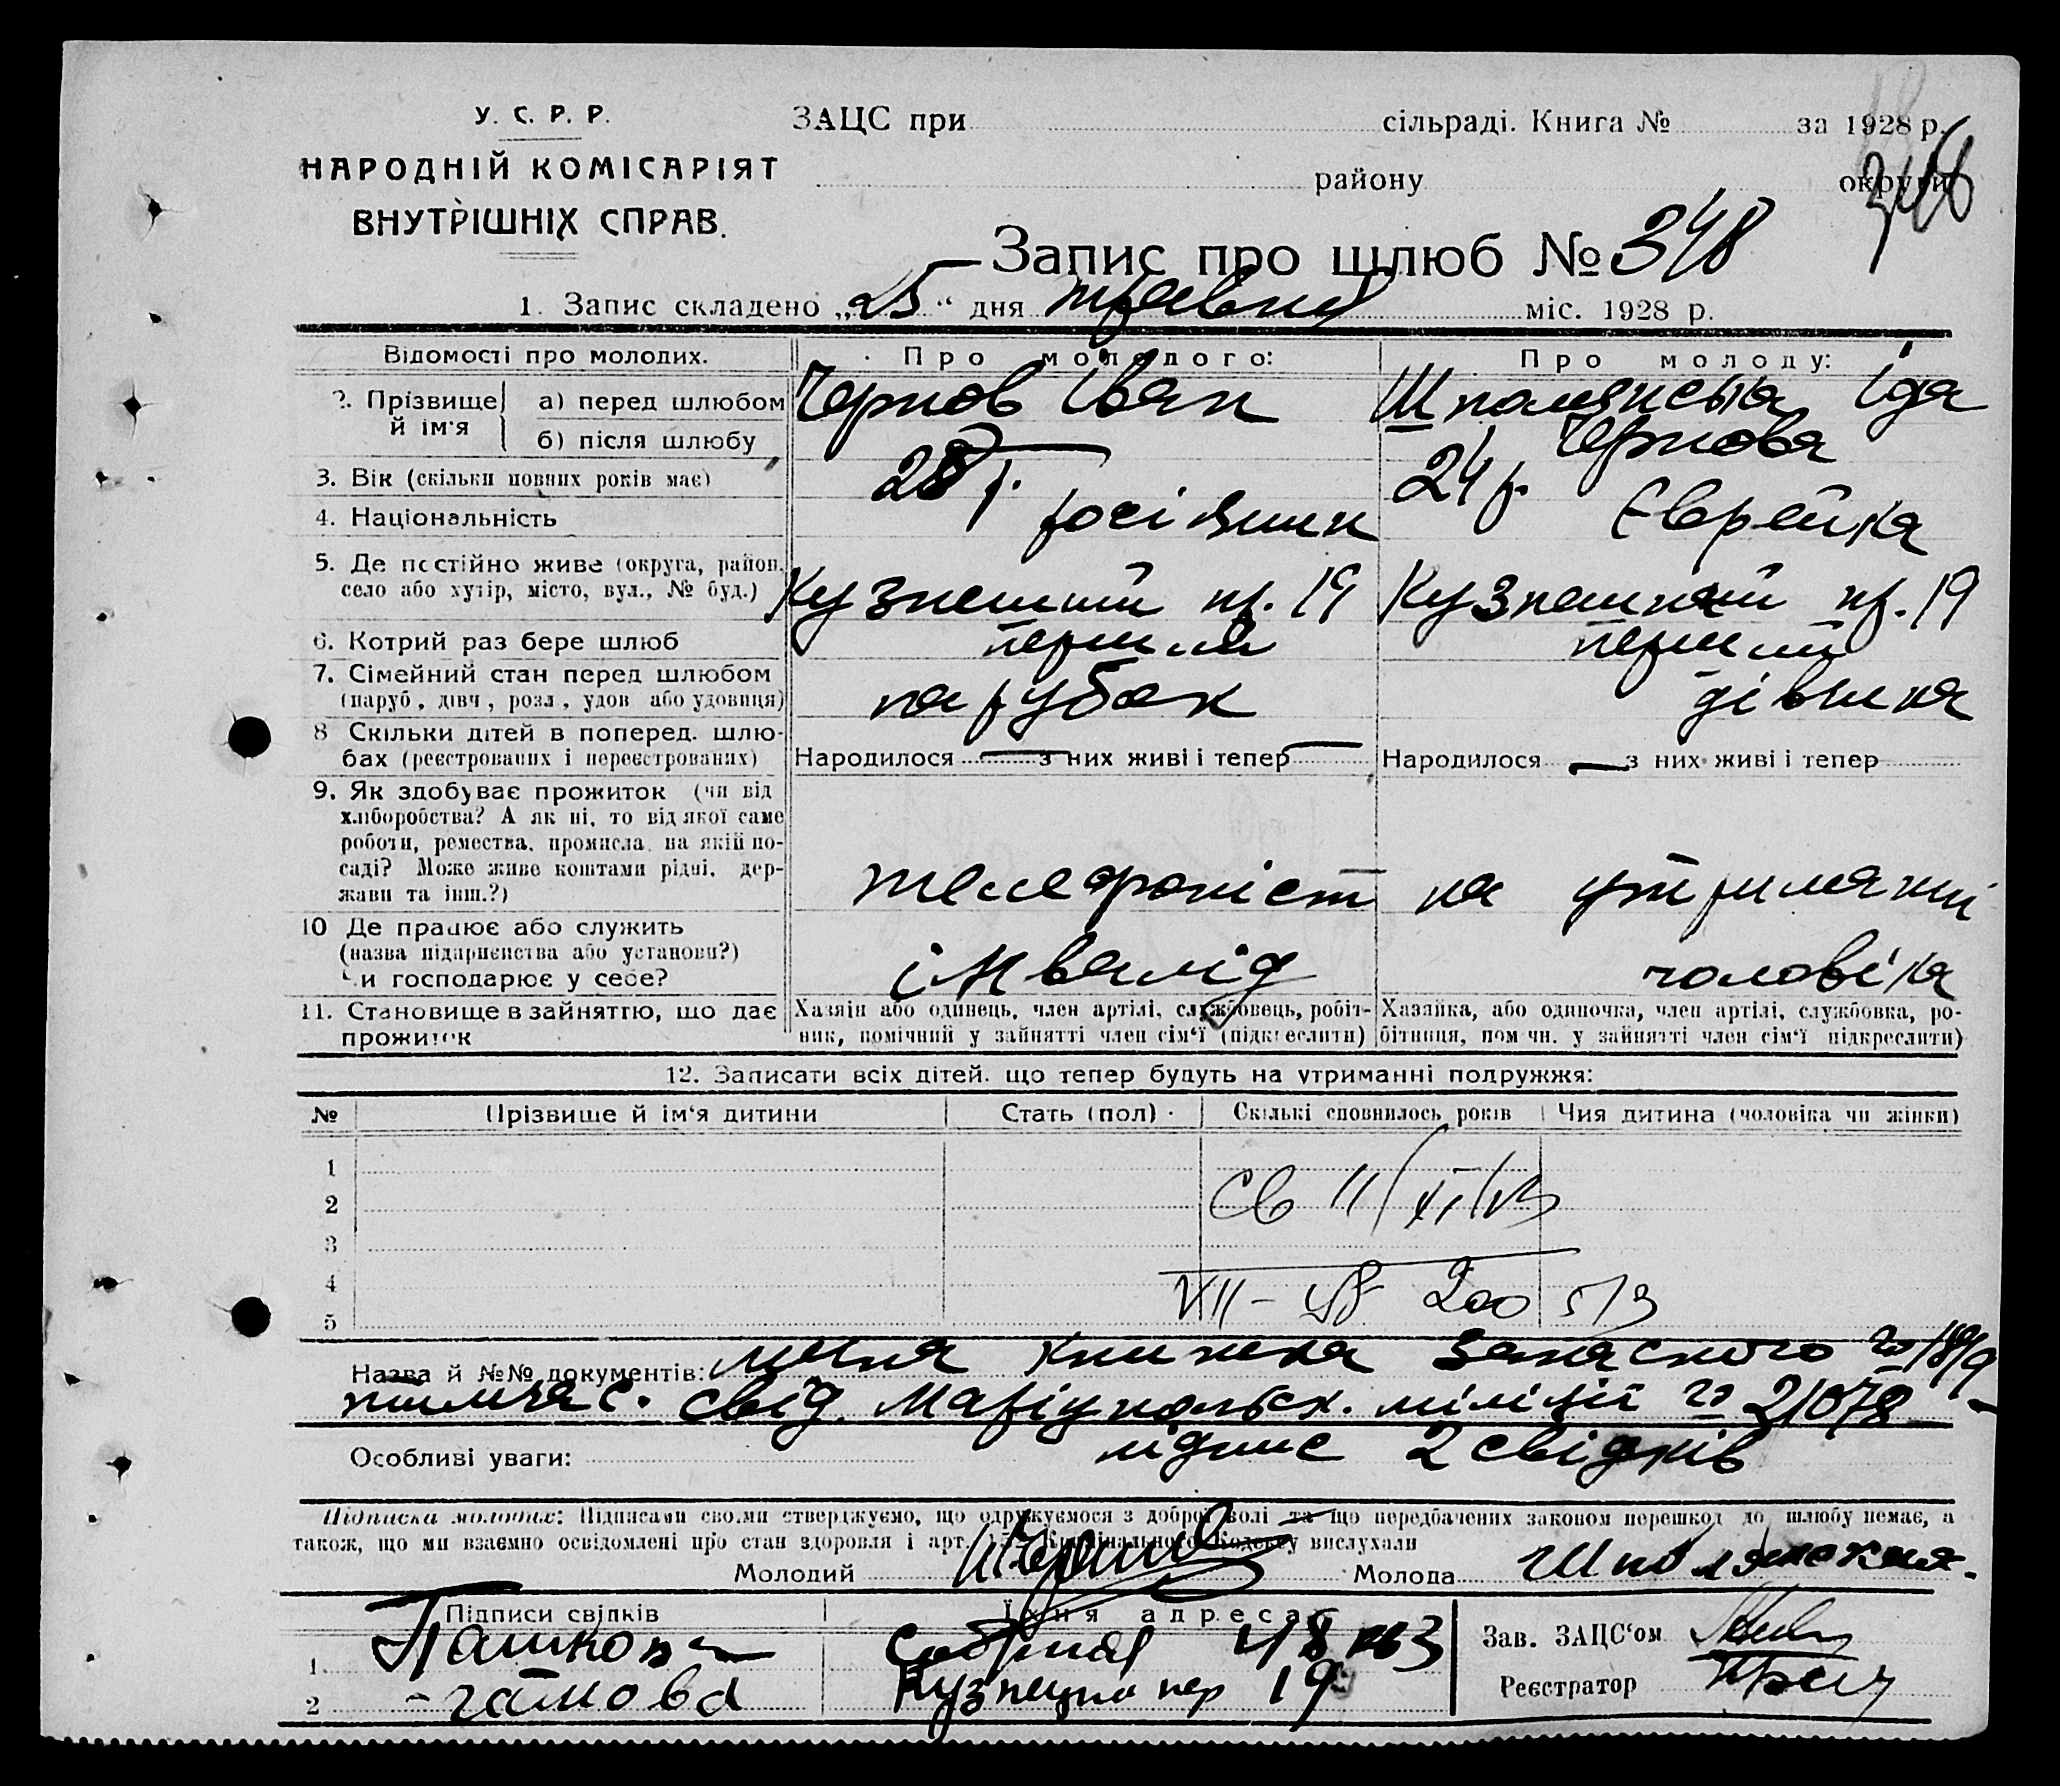 У. С. Р. Р.
НАРОДНІЙ КОМІСАРІЯТ
ВНУТРІШНІХ СПРАВ.
ЗАЦС при сільраді. Книга № за 1928 р.
району округи
Запис про шлюб № 348
1. Запис складено „25“ дня травня міс. 1928 р.
Відомості про молодих. Про молодого: Про молоду:
2. Прізвище й ім'я а) перед шлюбом Чернов Іван Шполянська Іда
б) після шлюбу Чернова
3. Вік (скільки повних років має) 28 р. 24 р.
4. Національність росіянин Єврейка
5. Де постійно живе (округа, район, село або хутір, місто, вул., № буд.) Кузнешний пр. 19 Кузнешний пр. 19
6. Котрий раз бере шлюб перший перший
7. Сімейний стан перед шлюбом (паруб., дівч., розл., удов. або удовиця) парубок дівчина
8 Скільки дітей в поперед. шлюбах (реєстрованих і нереєстрованих) Народилося — з них живі і тепер — Народилося — з них живі і тепер
9. Як здобуває прожиток (чи від
хліборобства? А як ні, то від якої саме
роботи, ремества, промисла, на якій по-
саді? Може живе коштами рідні, дер-
жави та інш.?) телефоніст на утриманні
10 Де працює або служить
(назва підприємства або установи?)
Чи господарює у себе? інвалід чоловіка
11. Становище в зайняттю, що дає прожиток
Хазяїн або одинець, член артілі, службовець, робіт-
ник, помічний у зайнятті член сім'ї (підкреслити)
Хазяйка, або одиночка, член артілі, службовка, ро-
бітниця, помічн. у зайнятті член сім'ї підкреслити)
12. Записати всіх дітей, що тепер будуть на утриманні подружжя:
№ Прізвище й ім'я дитини Стать (пол) Скількі сповнилось років Чия дитина (чоловіка чи жінки)
1
2
3
4
5
Назва й №№ документів: книжка запасного
тимчас. свід. Маріупольск. міліції № 21078
Особливі уваги: підпис 2 свідків
Підписка молодих: Підписами своїми стверджуємо, що одружуємося з доброї волі та що передбачених законом перешкод до шлюбу немає, а
також, що ми взаємно освідомлені про стан здоровля і арт. Крімінального Кодексу вислухали
Молодий Молода Шполянская.
Підписи свідків Їхня адреса
1. Зав. ЗАЦС'ом
2 Кузнецкий пер 19 Реєстратор